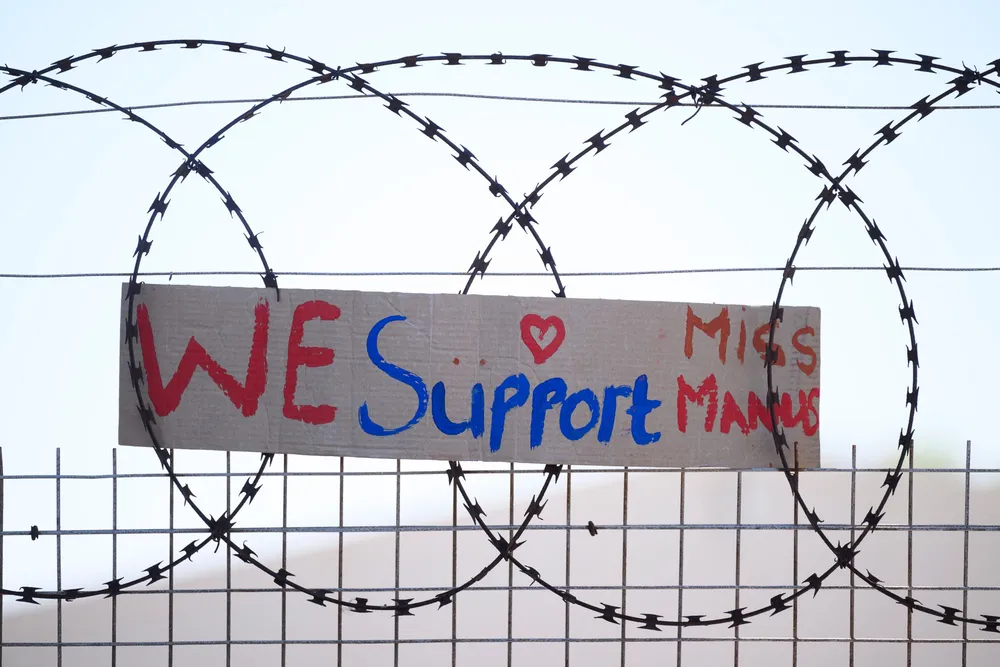 WE Support Miss
Manus